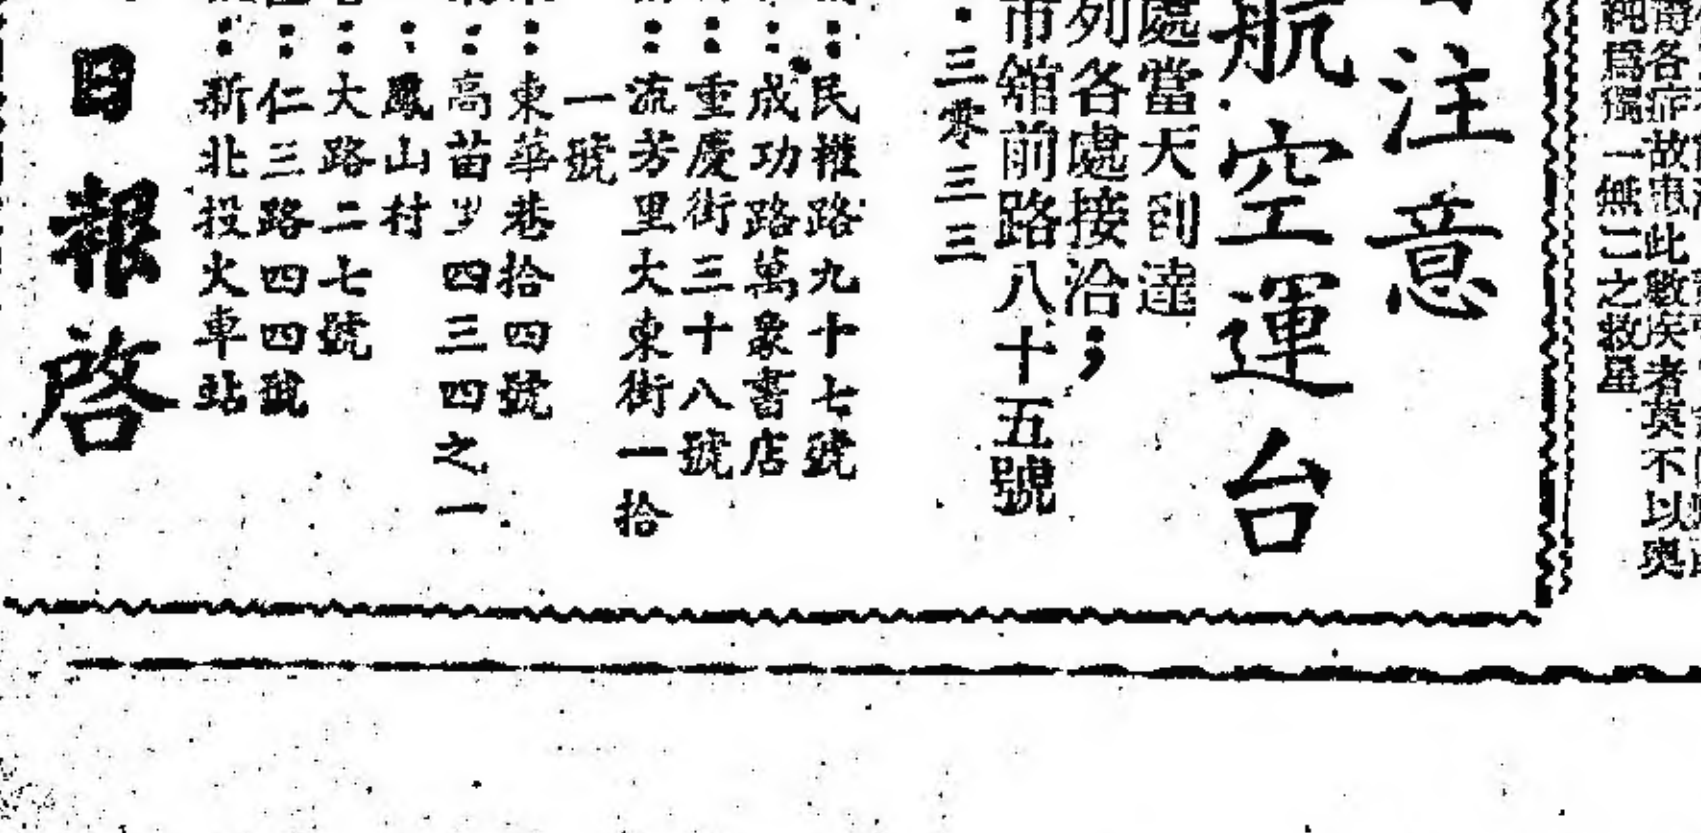 各症故患此數疾者莫不以
純爲獨一無二之救星
注意
航空運台
處當天到達
列各處接洽；
市館前路八十五號
：三零三三
：民權路九十七號
：成功路萬象書店
：重慶街三十八號
：流芳里大東街一拾
一號
：東華巷拾四號
：高苗岁四四三四之一
：鳳山村
：大路二七號
：仁三路四四號
：新北投火車站
日報啓